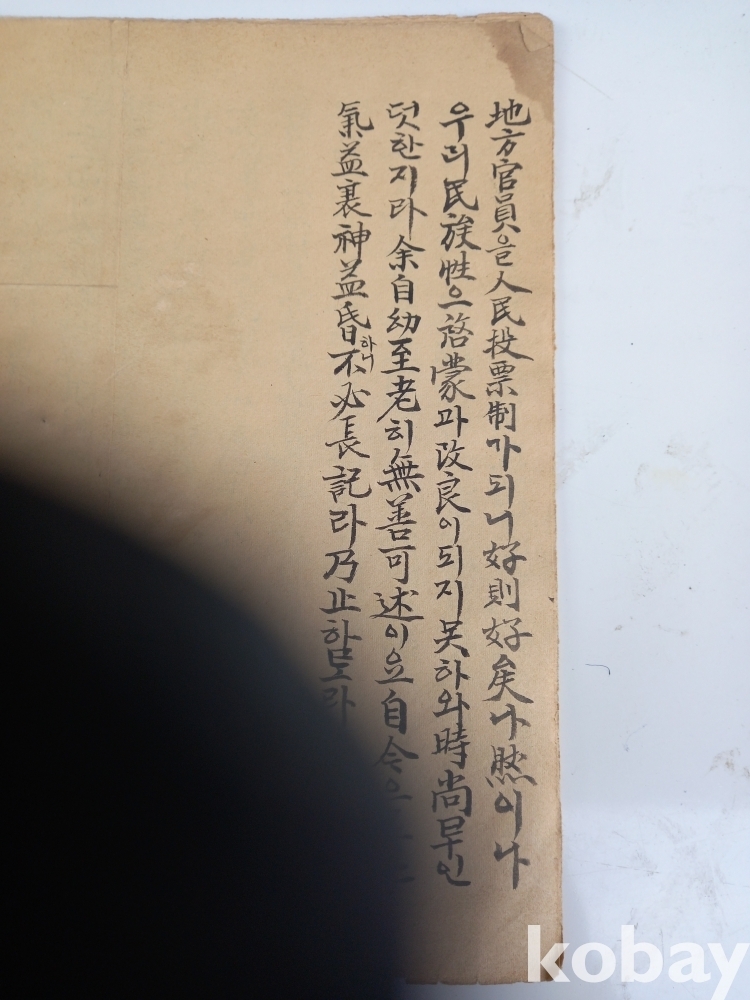 地方官員은人民投票制가되니好則好矣나然이나
우리民族性으啓蒙과改良이되지못하와時尙早인
덧한지라余自幼至老히無善可述이요自今은
氣益衰神益昏하니不必長記라乃止하노라
kobay